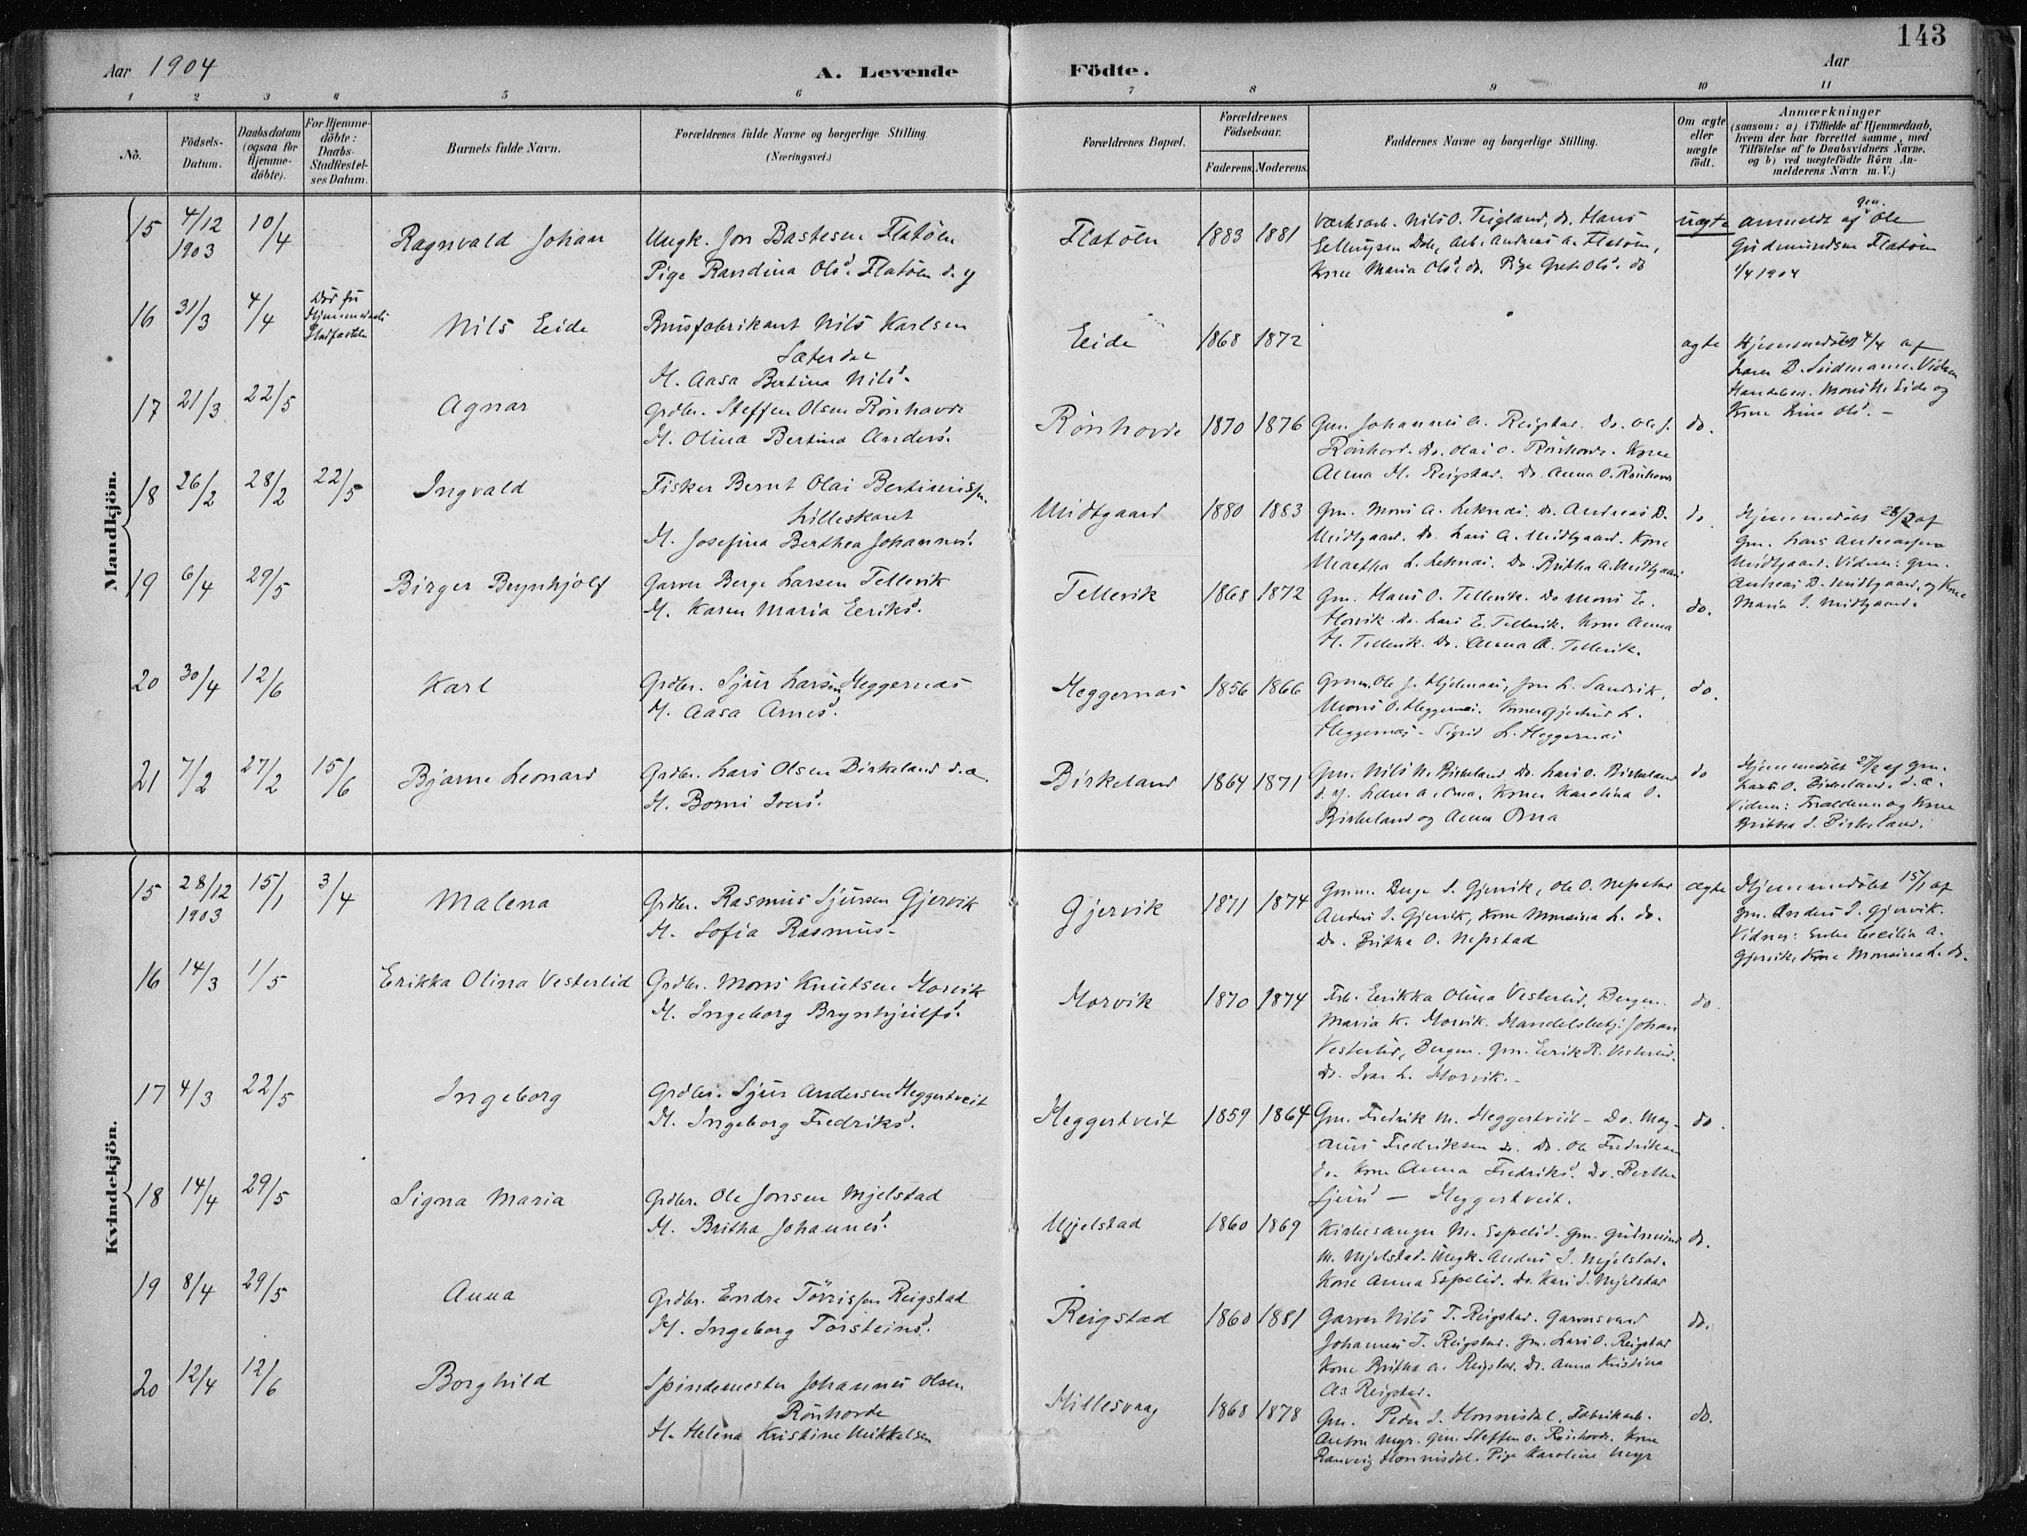 143
Aar 1904
A. Levende
Födte.
Aar
1 2 3 4 5 6 7 8 9 10 11
No.
Födsels-Datum.
Daabsdatum (ogsaa for Hjemme-döbte).
For Hjemme-döbte: Daabs-Stadfæstel-ses Datum.
Barnets fulde Navn.
Forældrenes fulde Navne og borgerlige Stilling
(Næringsvei.)
Forældrenes Bopæl.
Forældrenes Födselsaar.
Faderens. Moderens.
Faddernes Navne og borgerlige Stilling.
Om ægte eller uægte födt.
Anmærkninger
(saasom: a) i Tilfælde af Hjemmedaab,
hvem der har forrettet samme, med
Tilföielse af to Daabsvidners Navne,
og b) ved uægtefödte Börn An-
melderens Navn m. V.)
Mandkjön.
15 4/12 1903 10/4 Ragnvald Johan
Ungk. Jon Bastesen Flatöen
Pige Randina Olsd. Flatöen d. y
Flatöen 1883 1881
Værksarb. Nils O. Teigland, do. Hans
Ellingsen Dale, Arb. Andreas A. Flatöen,
Kone Maria Olsd. do. Pige Grete Olsd. do
uægte
anmeldt af gm. Ole
Gudmundsen Flatöen
1/4 1904
16 31/3 4/4 Död før Hjemmedaab Stadfæstelsen
Nils Eide
Brusfabrikant Nils Karlsen
Sæterdal
H. Aasa Bertina Nilsd.
Eide 1868 1872 ægte
Hjemmedöbt 4/4 af
Kone Lina Olsd. -
17 21/3 22/5 Agnar
Grdbr. Steffen Olsen Rönhovde
H. Olina Bertina Andersd.
Rönhovde 1870 1876
Gm. Johannes A. Reigstad. Do. Ole J.
Rönhovd. Do. Olai O. Rönhovde. Kone
Anna H. Reigstad. Do. Anna O. Rönhovd
do.
18 26/2 28/2 22/5 Ingvald
Fisker Bernt Olai Bertiniusen
Lilleskaret
H. Josefina Berthea Johannesd.
Midtgaard 1880 1883
Gm. Mons A. Leknes, Do. Andreas D.
Midtgaard. Do. Lars A. Midtgaard. Kone
Martha L. Leknes. Do. Britha A. Midtgaard.
do.
Hjemmedöbt 28/2 af
gm. Lars Andreassen
Midtgaard. Vidner: gm.
Andreas D. Midtgaard, og Kone
Maria J. Midtgaard.
19 6/4 29/5 Birger Brynhjolf
Garver Berge Larsen Tellevik
H. Karen Maria Eeriksd.
Tellevik 1868 1872
Gm. Hans O. Tellevik. Do Mons E.
Horvik. Do. Lars E. Tellevik. Kone Anna
H. Tellevik. Do. Anna A. Tellevik.
do.
20 30/4 12/6 Karl
Grdbr. Sjur Larsen Heggernæs
H. Aasa Arnesd.
Heggernæs 1856 1866
Gmm. Ole J. Hjelmaas, Jon L. Sandvik,
Mons O. Heggernes. Koner Gjertrud L.
Heggernæs - Sigrid L. Heggernæs
do.
21 7/2 27/2 15/6 Bjarne Leonard
Grdbr. Lars Olsen Birkeland d. æ.
H. Borni Ivers.
Birkeland 1864 1871
Gm. Nils N. Birkeland. Do. Lars O. Birkeland
d. y. Lærer A. Oma. Koner Karolina O.
Birkeland og Anna Oma
do
Hjemmedöbt 27/2 af gm.
Lars O. Birkeland. d. æ.
Vidner: Forældrene og Kone
Britha J. Birkeland.
Kvindekjön.
15 28/12 1903 15/1 3/4 Malena
Grdbr. Rasmus Sjursen Gjervik
H. Sofia Rasmusd.
Gjervik 1871 1874
Gmm. Berge S. Gjervik, Ole O. Nepstad
Anders S. Gjervik, Kone Monsina L. do.
Do. Britha O. Nepstad
ægte
Hjemmedöbt 15/1 af
gm. Anders S. Gjervik.
Vidner: Enke Cecilia A.
Gjervik, Kone Monsina L. do.
16 14/3 1/5 Erikka Olina Vesterlid
Grdbr. Mons Knutsen Morvik
H. Ingeborg Brynhjulfsd.
Morvik 1870 1874
Frk. Erikka Olina Vesterlid, Bergen.
Maria K. Morvik. Handelsbetj. Johan
Vesterlid, Bergen. Gm. Eerik R. Vesterlid.
Do. Ivar L. Morvik. -
do.
17 4/3 22/5 Ingeborg
Grdbr. Sjur Andersen Heggertveit
H. Ingeborg Fredriksd.
Heggertveit 1859 1864
Gm. Fredrik M. Heggertveit - Do. Mag-
nus Fredriksen do. Do. Ole Fredriksen
do. Kone Anna Fredriksd. Do. Berthe
Sjursd - Heggertveit.
do.
18 14/4 29/5 Signa Maria
Grdbr. Ole Jonsen Mjelstad
H. Britha Johannesd.
Mjelstad 1860 1869
Kirkesanger M. Espelid. Gm. Gudmund
M. Mjelstad. Ungk. Anders J. Mjelstad.
Kone Anna Espelid. Do. Kari J. Mjelstad
do.
19 8/4 29/5 Anna
Grdbr. Endre Törrissen Reigstad
H. Ingeborg Torsteinsd.
Reigstad 1860 1881
Garver Nils T. Reigstad. Garversvend
Johannes T. Reigstad. Gm. Lars O. Reigstad
Kone Britha A. Reigstad. Do. Anna Kristina
As Reigstad.
do.
20 12/4 12/6 Borghild
Spindemester Johannes Olsen
Rönhovde
H. Helena Kristine Mikkelsen
Hillesvaag 1868 1878
Gm. Peder J. Honnisdal. Fabrikarb.
Anton Myr. Gm. Steffen O. Rönhovde. Kone
Ranveig Honnisdal. Pige Karoline Myr
do.